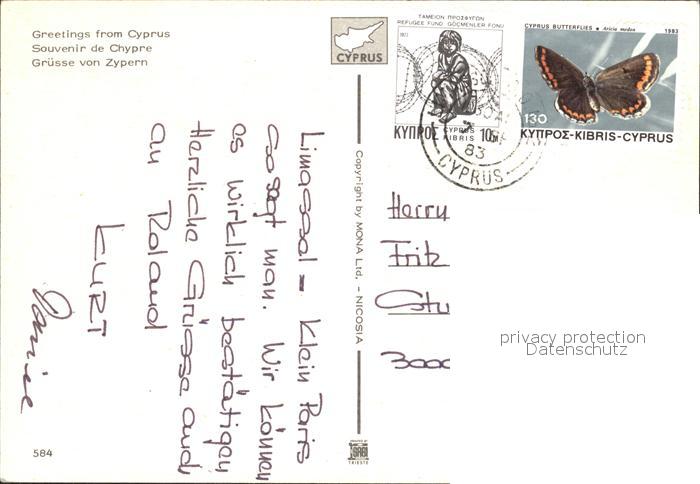 Greetings from Cyprus
Souvenir de Chypre
Grüsse von Zypern
CYPRUS
ΤΑΜΕΙΟΝ ΠΡΟΣΦΥΓΩΝ
REFUGEE FUND GÖÇMENLER FONU
1977
ΚΥΠΡΟΣ CYPRUS KIBRIS 10M
CYPRUS BUTTERFLIES • Aricia medon 1983
130
ΚΥΠΡΟΣ-KIBRIS-CYPRUS
83
CYPRUS
Limassol = Klein Paris
sagt man. Wir können
es wirklich bestätigen
Herzliche Grüsse auch
an Roland
KURT
Copyright by MONA Ltd. - NICOSIA
Herry
Fritz
Stu
3000
privacy protection
Datenschutz
584
TRIESTE